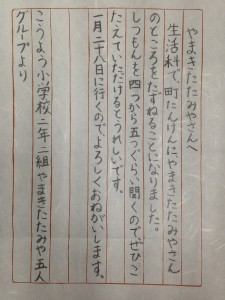 やまきたたみやさんへ
生活科で、町たんけんにやまきたたみやさん
のところをたずねることになりました。
しつもんを四つから五つぐらい聞くのでぜひこ
たえていただけるとうれしいです。
一月二十八日に行くのでよろしくおねがいします。
こうよう小学校二年二組やまきたたみや五人
グループより